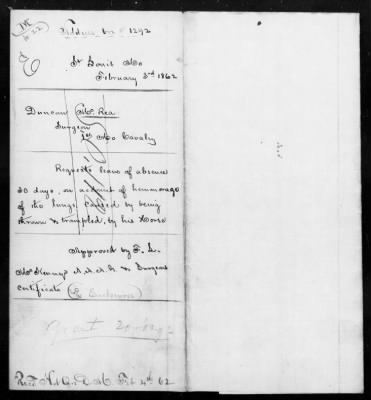 1292
St Louis Mo
February 3rd 1862
Duncan McRea
Surgeon
1st Mo Cavalry
Requests leave of absence
20 days, on account of hemmorage
of the lungs caused by being
thrown & trampled, by his Horse
Approved by F. L.
A. A. A. G. & Surgeons
certificate (& Enclosures)
Grant 20 days
Recd Hd Qrs D Mo Feb 4th 62